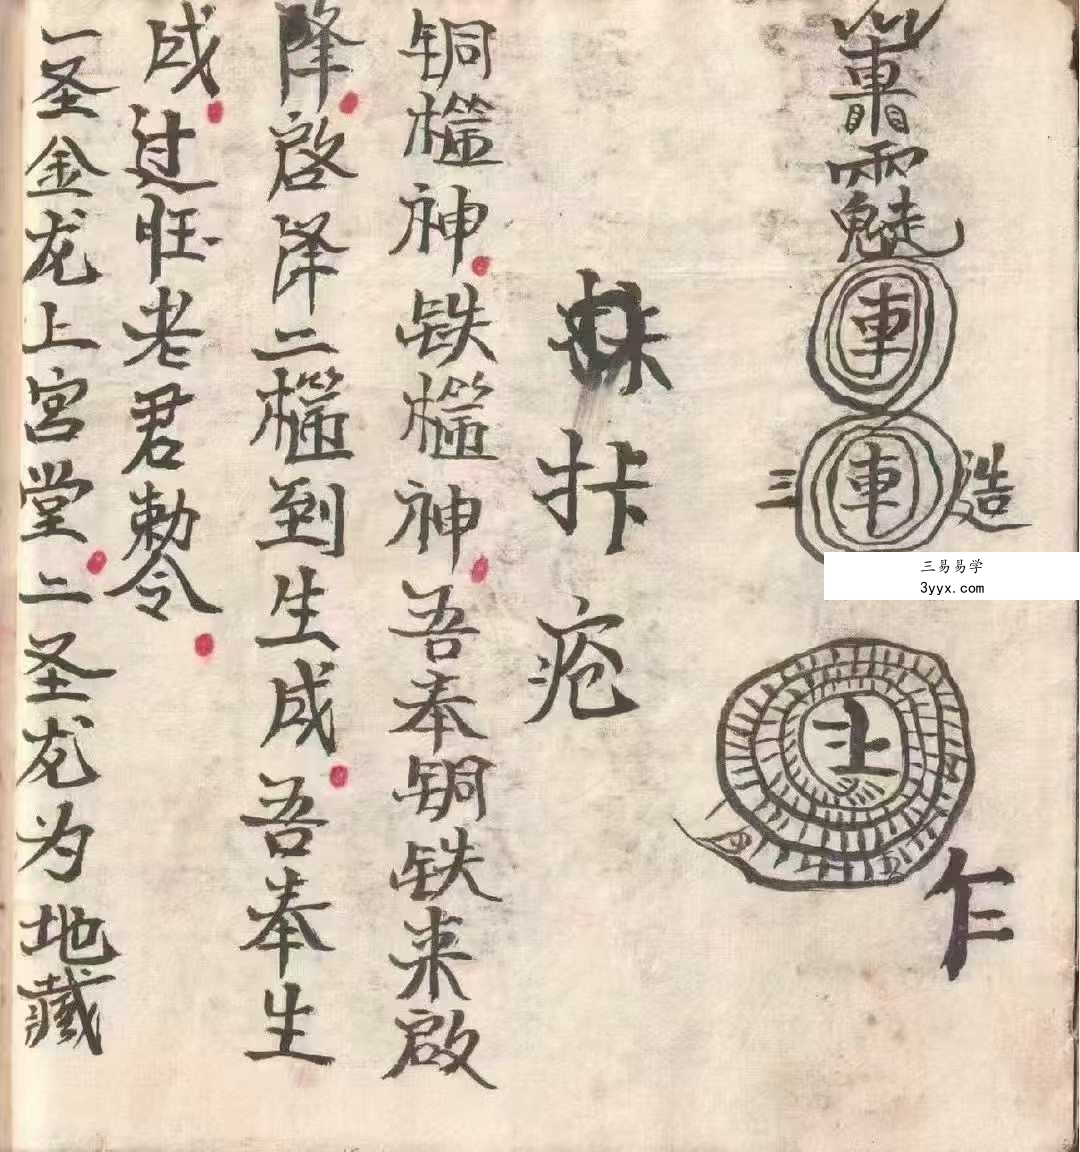 車
三 車 造
三易易学
3yyx.com
乍
疮
铜槛神。铁槛神。吾奉铜铁来啟
降。啓降二槛到生成。吾奉生
成。过旺老君勅令。
一圣金龙上宫堂。二圣龙为地藏